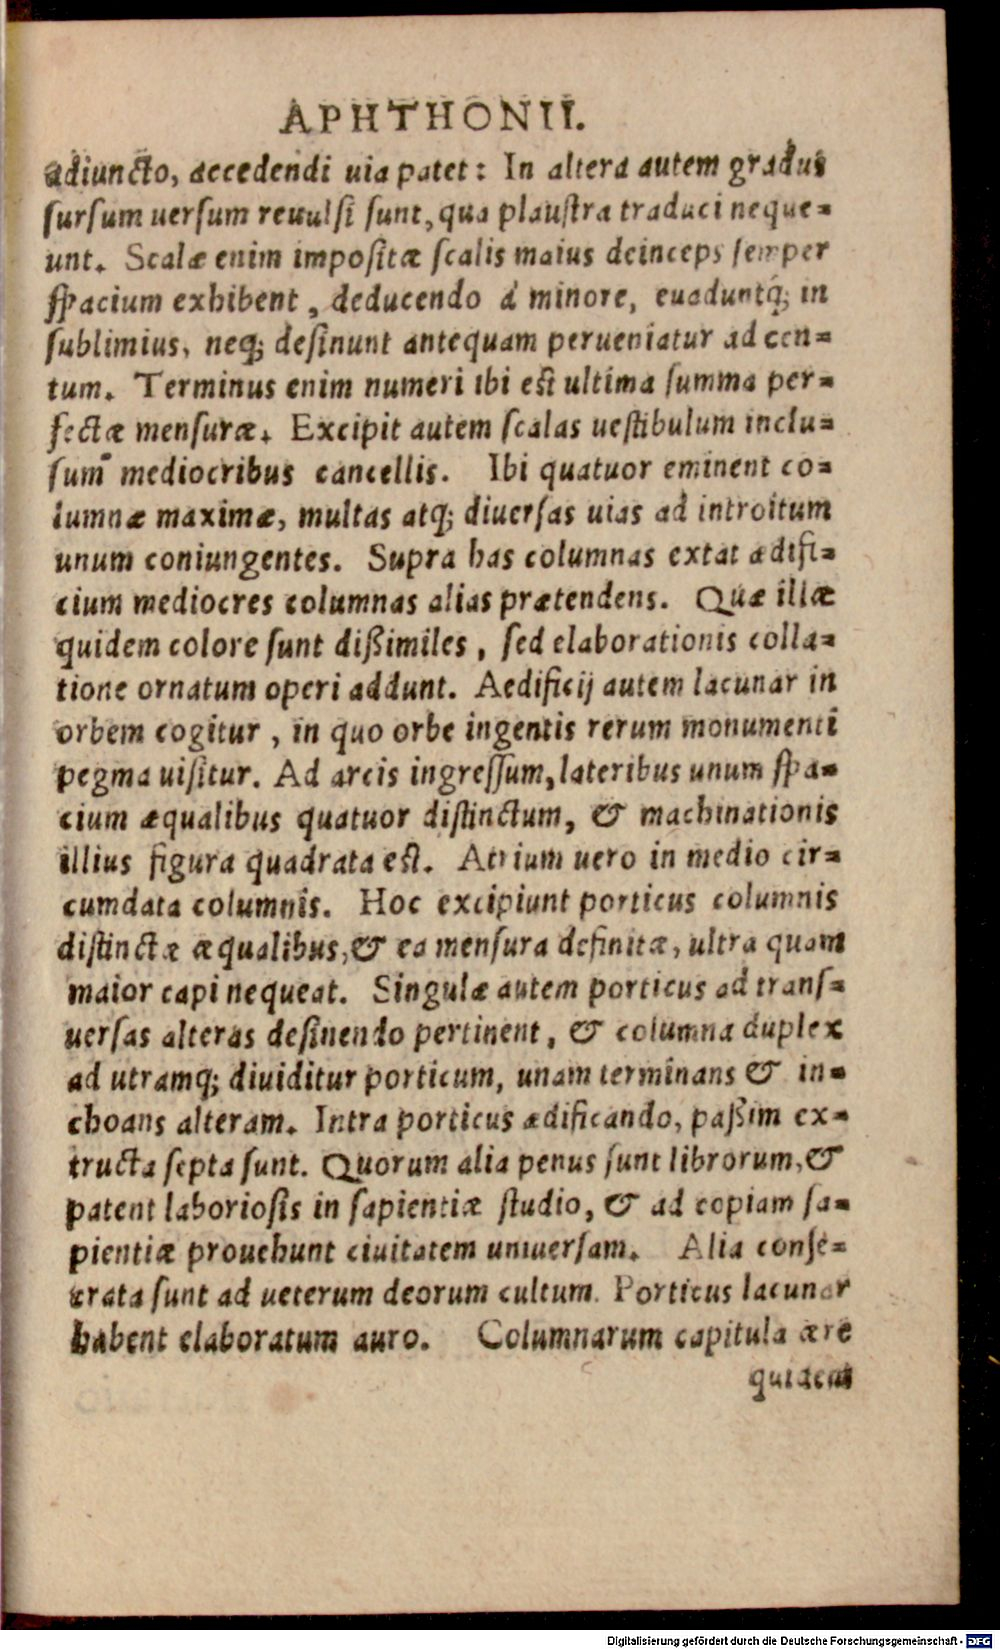 APHTHONII.
adiuncto, accedendi uia patet: In altera autem gradus
sursum uersum reuulsi sunt, qua plaustra traduci neque=
unt. Scalæ enim impositæ scalis maius deinceps semper
spacium exhibent, deducendo à minore, euaduntq́; in
sublimius, neq; desinunt antequam perueniatur ad cen=
tum. Terminus enim numeri ibi est ultima summa per=
fectæ mensuræ. Excipit autem scalas uestibulum inclu=
sum mediocribus cancellis. Ibi quatuor eminent co=
lumnæ maximæ, multas atq; diuersas uias ad introitum
unum coniungentes. Supra has columnas extat ædifi=
cium mediocres columnas alias prætendens. Quæ illæ
quidem colore sunt dißimiles, sed elaborationis colla=
tione ornatum operi addunt. Aedificij autem lacunar in
orbem cogitur, in quo orbe ingentis rerum monumenti
pegma uisitur. Ad arcis ingressum, lateribus unum spa=
cium æqualibus quatuor distinctum, & machinationis
illius figura quadrata est. Atrium uero in medio cir=
cumdata columnis. Hoc excipiunt porticus columnis
distinctæ æqualibus, & ea mensura definitæ, ultra quam
maior capi nequeat. Singulæ autem porticus ad trans=
uersas alteras desinendo pertinent, & columna duplex
ad utramq; diuiditur porticum, unam terminans & in=
choans alteram. Intra porticus ædificando, paßim ex=
tructa septa sunt. Quorum alia penus sunt librorum, &
patent laboriosis in sapientiæ studio, & ad copiam sa=
pientiæ prouehunt ciuitatem uniuersam. Alia conse=
crata sunt ad ueterum deorum cultum. Porticus lacunar
habent elaboratum auro. Columnarum capitula ære
quidem
Digitalisierung gefördert durch die Deutsche Forschungsgemeinschaft - DFG